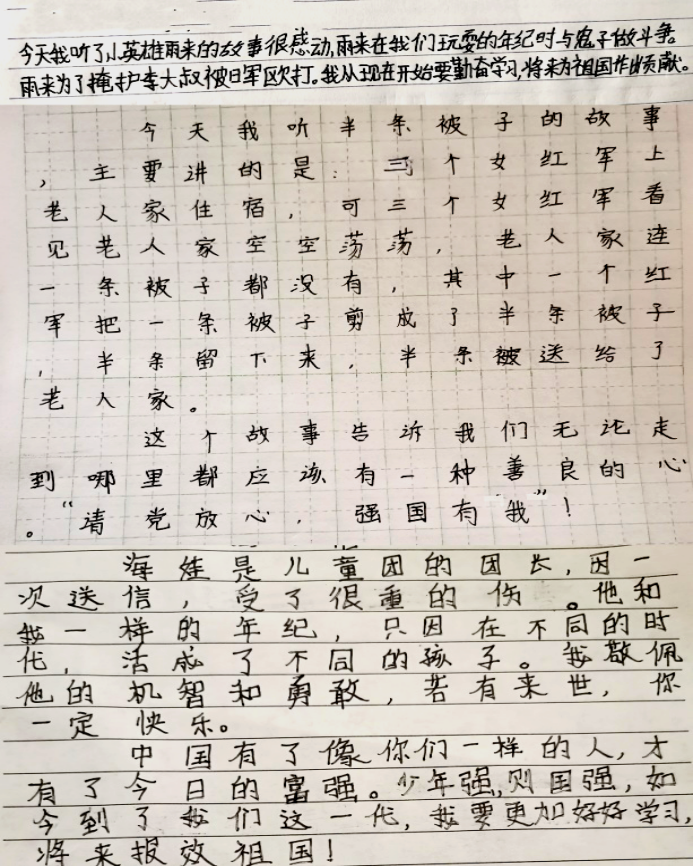 今天我听了小英雄雨来的故事很感动,雨来在我们玩耍的年纪时与鬼子做斗争
雨来为了掩护李大叔被日军欧打。我从现在开始要勤奋学习,将来为祖国作出贡献。
今天我听半条被子的故事
,主要讲的是:三个女红军上
老人家住宿,可三个女红军看
见老人家空空荡荡,老人家连
一条被子都没有,其中一个红
军把一条被子剪成了半条被子
,半条留下来,半条被送给了
老人家。
这个故事告诉我们无论走
到哪里都应该有一种善良的心
。“请党放心,强国有我”!
海娃是儿童团的团长,因一
次送信,受了很重的伤。他和
我一样的年纪,只因在不同的时
代,活成了不同的孩子。我敬佩
他的机智和勇敢,若有来世,你
一定快乐。
中国有了像你们一样的人,才
有了今日的富强。少年强,则国强,如
今到了我们这一代,我要更加好好学习,
将来报效祖国!